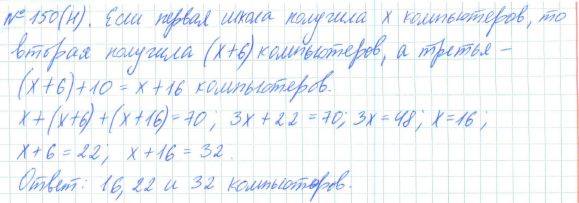 № 150(н). Если первая школа получила x компьютеров, то
вторая получила (x+6) компьютеров, а третья –
(x+6)+10 = x+16 компьютеров.
x+(x+6)+(x+16)=70; 3x+22=70; 3x=48; x=16;
x+6=22; x+16=32.
Ответ: 16, 22 и 32 компьютеров.